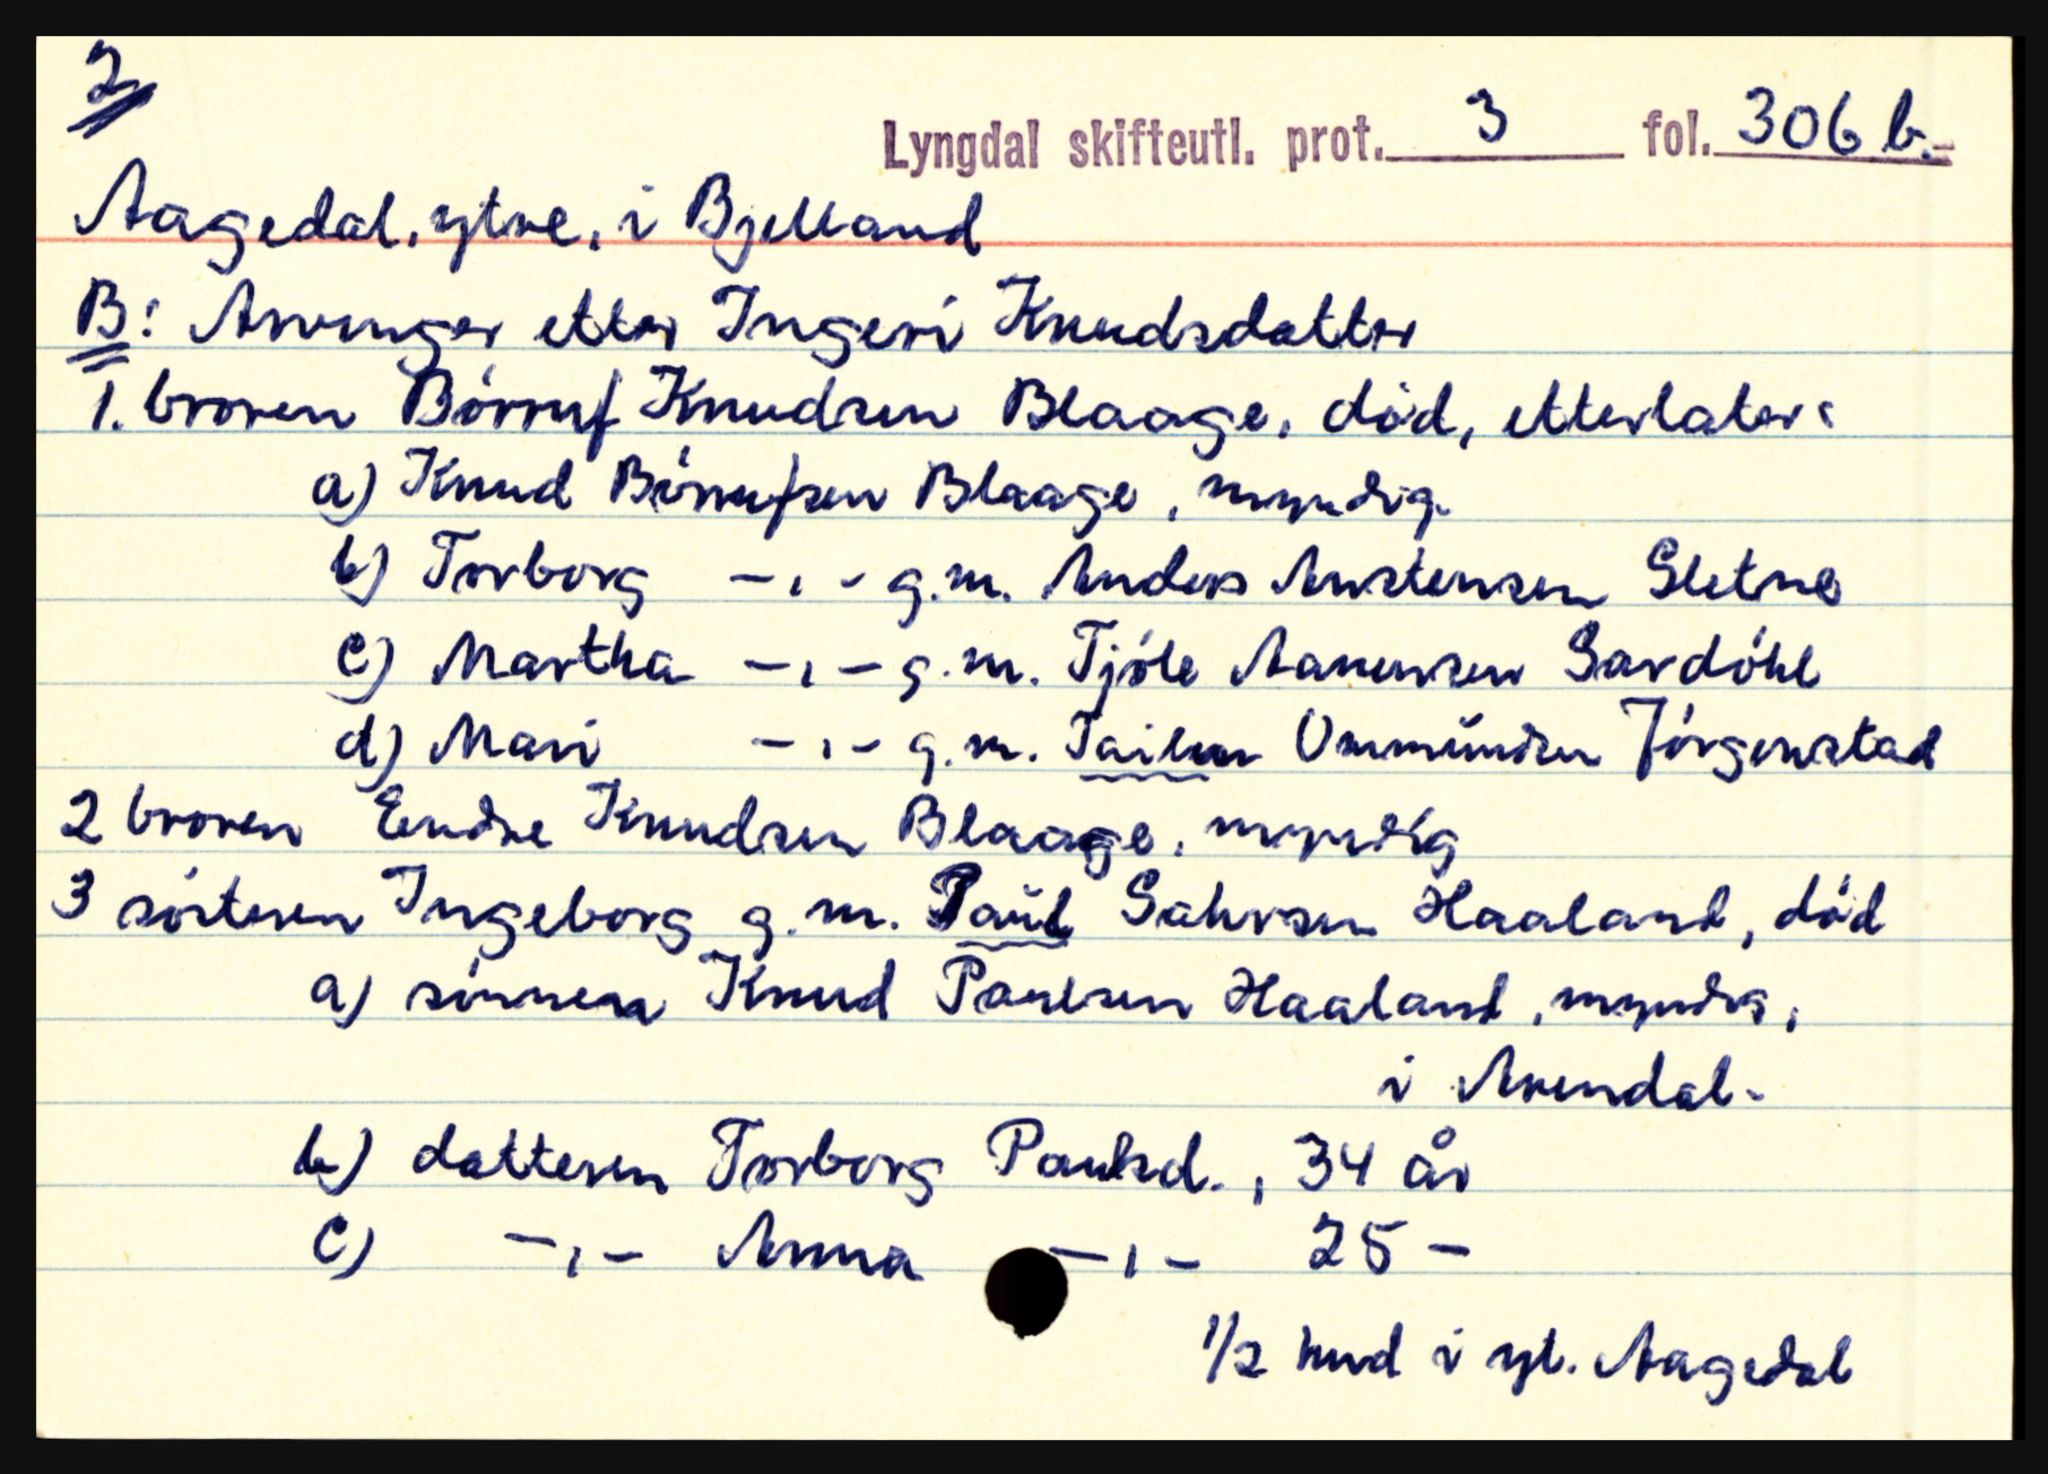 2
Lyngdal skifteutl. prot. 3 fol. 306 b.
Aagedal, ytre, i Bjelland
B: Arvinger etter Ingeri Knudsdatter
1. broren Börruf Knudsen Blaage, död, etterlater:
a) Knud Börrufsen Blaage, myndig.
b) Torborg -,- g.m. Anders Austensen Sletne
c) Martha -,- g.m. Tjöle Aanensen Gardöhl
d) Mari -,- g.m. Ommündsen Jörgenstad
2 broren Endre Knudsen Blaage, myndig
3 sösteren Ingeborg g.m. Paul Haaland, död
a) sönnen Knud Paulsen Haaland, myndig,
i Arendal.
b) datteren Torborg Paulsd., 34 år
c) -,- Anna -,- 25 -
1/2 hud i yt. Aagedal